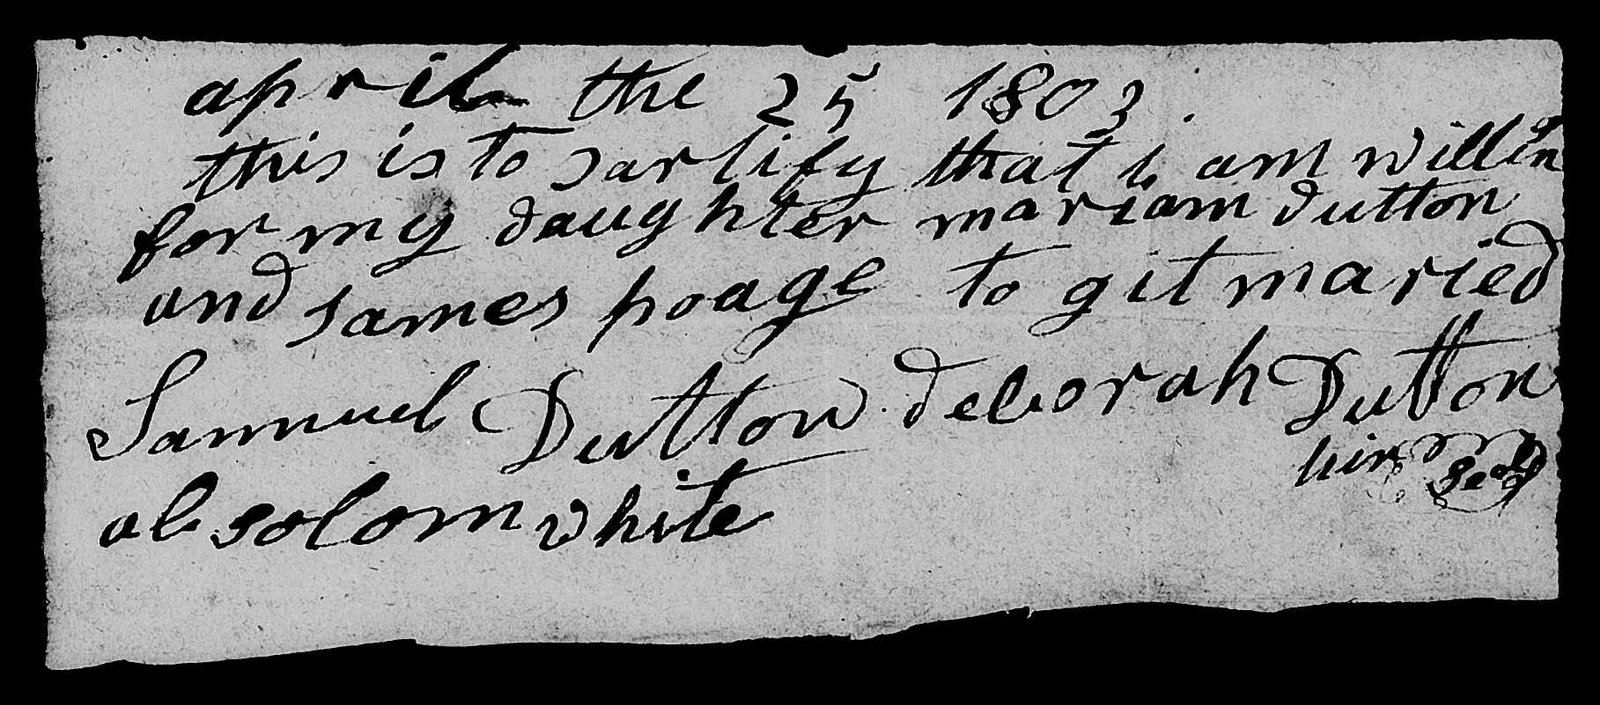 april the 25 1803.
this is to sartify that i am willin
for my daughter mariam dutton
and james poage to git maried
Samuel Dutton deborah Dutton
hir seal
absolom white